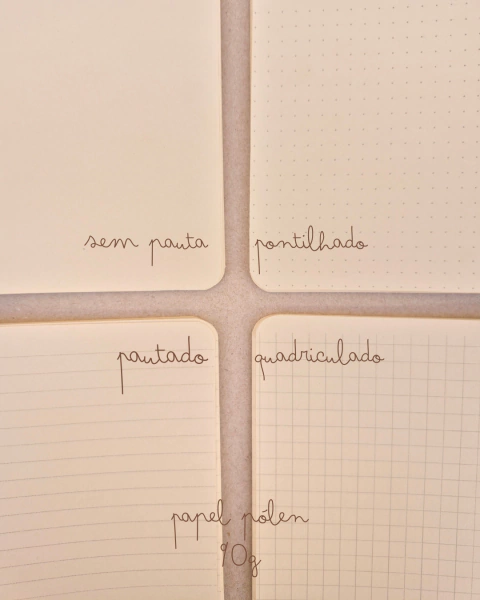 sem pauta
pontilhado
pautado
quadriculado
papel pólen
90g